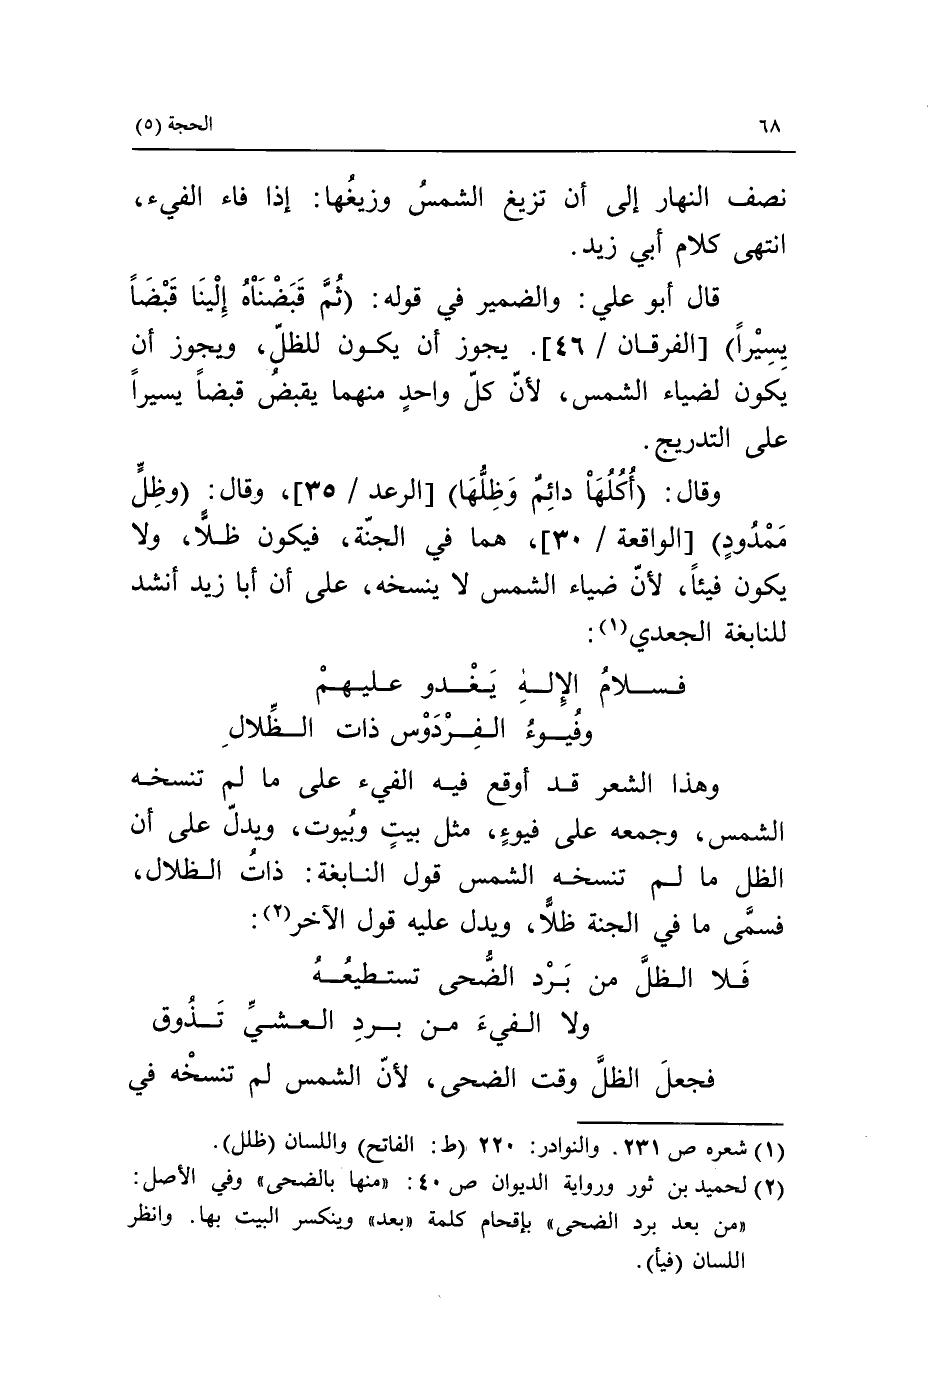 ٦٨
الحجة (٥)
نصف النهار إلى أن تزيغ الشمسُ وزيغُها: إذا فاء الفيء،
انتهى كلام أبي زيد.
قال أبو علي: والضمير في قوله: (ثُمَّ قَبَضْنَاْهُ إِلْينَا قَبْضَاً
يسِيْراً) [الفرقان / ٤٦]. يجوز أن يكون للظلّ، ويجوز أن
يكون لضياء الشمس، لأنّ كلّ واحدٍ منهما يقبضُ قبضاً يسيراً
على التدريج.
وقال: (أُكُلُهَاْ دائِمٌ وَظِلُّهَا) [الرعد / ٣٥]، وقال: (وظِلٍّ
مَمْدُودٍ) [الواقعة / ٣٠]، هما في الجنّة، فيكون ظلًّا، ولا
يكون فيئاً، لأنّ ضياء الشمس لا ينسخه، على أن أبا زيد أنشد
للنابغة الجعدي(١):
فسلامُ الإِلهِ يَغْدو عليهمْ
وفُيوءُ الفِرْدَوْس ذات الظِّلالِ
وهذا الشعر قد أوقع فيه الفيء على ما لم تنسخه
الشمس، وجمعه على فيوءٍ، مثل بيتٍ وبُيوت، ويدلّ على أن
الظل ما لم تنسخه الشمس قول النابغة: ذاتُ الظلال،
فسمَّى ما في الجنة ظلًّا، ويدل عليه قول الآخر(٢):
فَلا الظلَّ من بَرْد الضُّحى تستطيعُهُ
ولا الفيءَ من بردِ العشيِّ تَذُوق
فجعلَ الظلَّ وقت الضحى، لأنّ الشمس لم تنسخْه في
(١) شعره ص ٢٣١. والنوادر: ٢٢٠ (ط: الفاتح) واللسان (ظلل).
(٢) لحميد بن ثور ورواية الديوان ص ٤٠: «منها بالضحى» وفي الأصل:
«من بعد برد الضحى» بإقحام كلمة «بعد» وينكسر البيت بها. وانظر
اللسان (فيأ).